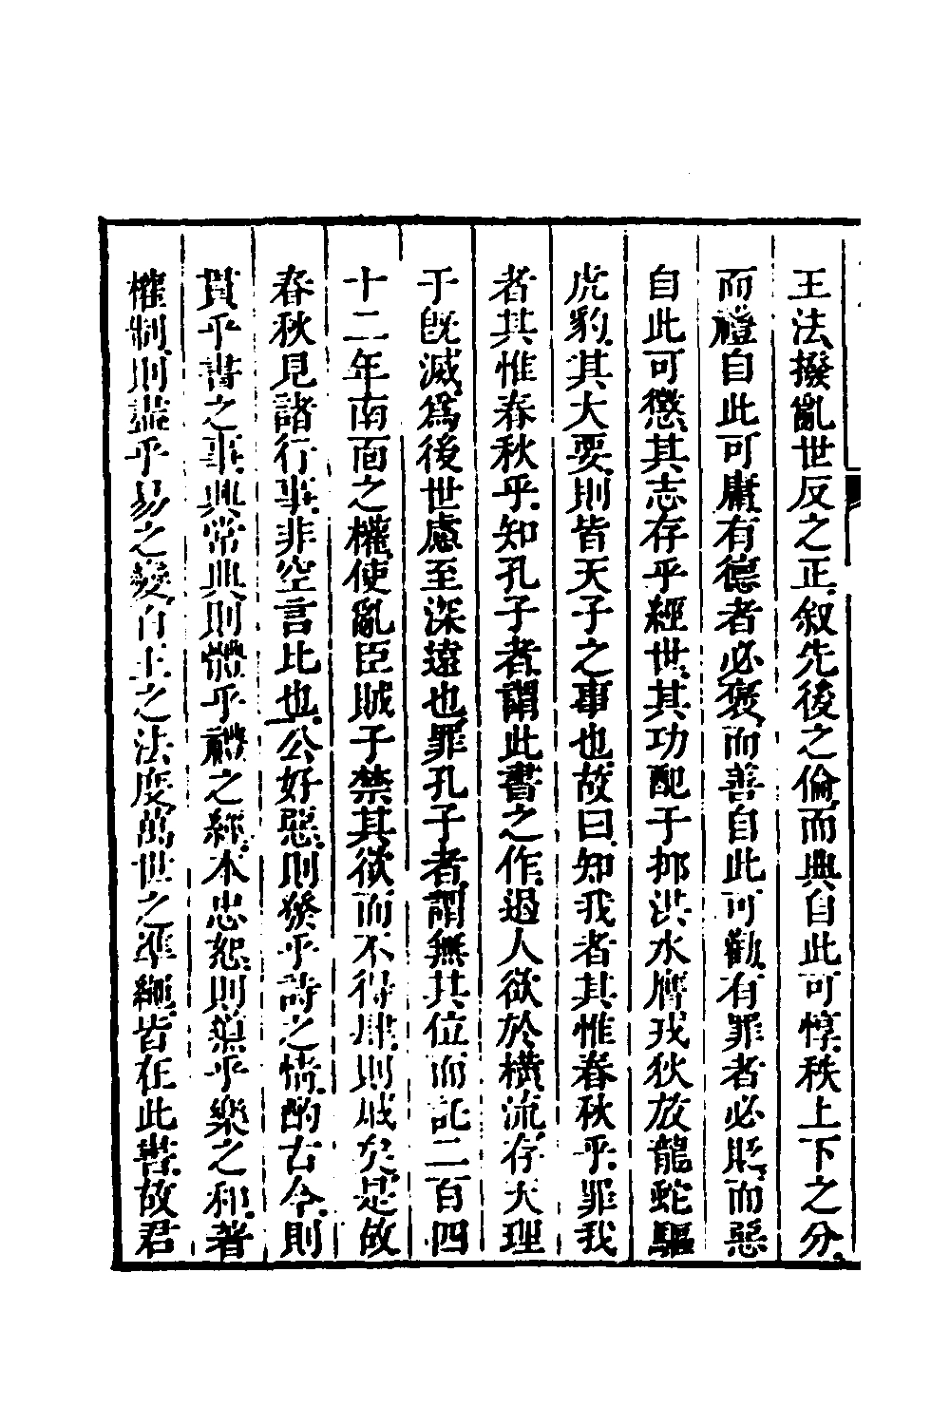 王法撥亂世反之正叙先後之倫而典自此可惇秩上下之分
而禮自此可庸有德者必褒而善自此可勸有罪者必貶而惡
自此可懲其志存乎經世其功配于抑洪水膺戎狄放龍蛇驅
虎豹其大要則皆天子之事也故曰知我者其惟春秋乎罪我
者其惟春秋乎知孔子者謂此書之作遏人欲於橫流存天理
于旣滅為後世慮至深遠也罪孔子者謂無其位而託二百四
十二年南面之權使亂臣賊子禁其欲而不得肆則戚矣是故
春秋見諸行事非空言比也公好惡則發乎詩之情酌古今則
貫乎書之事興常典則體乎禮之經本忠恕則導乎樂之和著
權制則盡乎易之變百王之法度萬世之準繩皆在此書故君